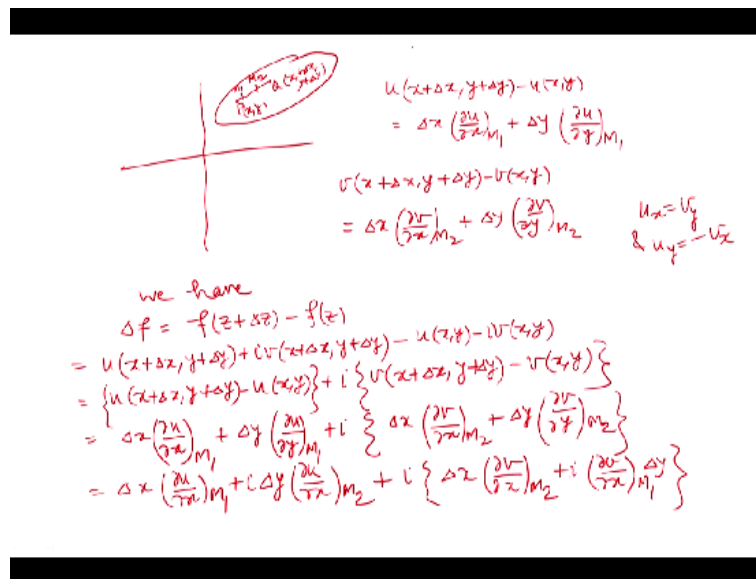 M₁ M₂ Q(x+Δx, y+Δy)
P(x,y)
u(x+Δx, y+Δy) - u(x,y)
= Δx (∂u/∂x)_M₁ + Δy (∂u/∂y)_M₁
v(x+Δx, y+Δy) - v(x,y)
= Δx (∂v/∂x)_M₂ + Δy (∂v/∂y)_M₂
u_x = v_y
& u_y = -v_x
we have
Δf = f(z+Δz) - f(z)
= u(x+Δx, y+Δy) + iv(x+Δx, y+Δy) - u(x,y) - iv(x,y)
= {u(x+Δx, y+Δy) - u(x,y)} + i {v(x+Δx, y+Δy) - v(x,y)}
= Δx (∂u/∂x)_M₁ + Δy (∂u/∂y)_M₁ + i { Δx (∂v/∂x)_M₂ + Δy (∂v/∂y)_M₂ }
= Δx (∂u/∂x)_M₁ + i Δy (∂u/∂x)_M₂ + i { Δx (∂v/∂x)_M₂ + i (∂v/∂x)_M₁ Δy }